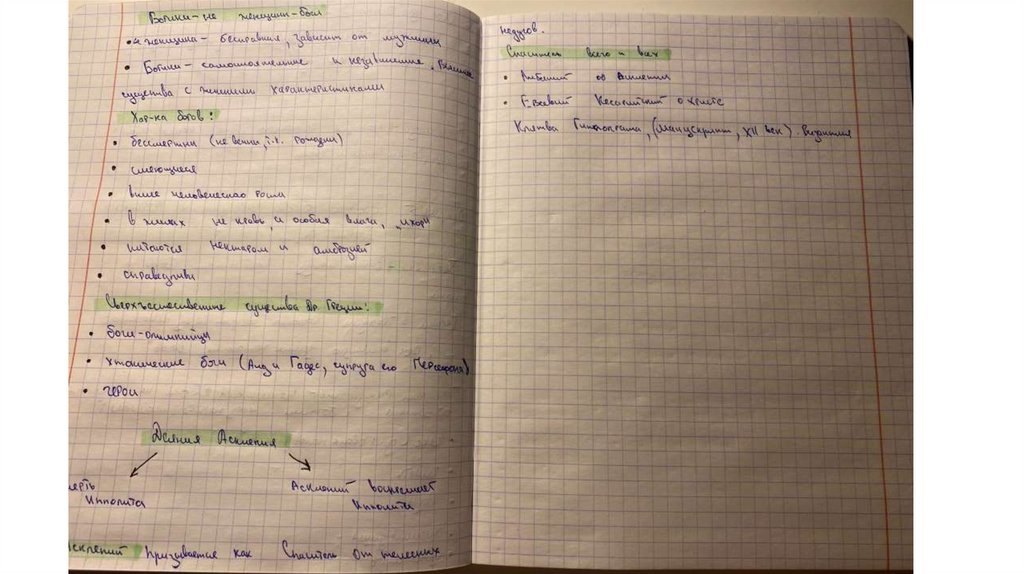 Богини - не женщины-боги
• ч женщина - бесправная, зависит от мужчины
• Богини - самостоятельные и независимые.
существа с женскими характеристиками
Хар-ка богов:
• бессмертны (не вечны, т.к. рождены)
• смеющиеся
• выше человеческого роста
• в жилах не кровь, а особая влага, "ихор"
• питаются нектаром и амброзией
• справедливы
Сверхъестественные существа Др. Греции:
• боги-олимпийцы
• хтонические боги (Аид и Гадес, супруга его Персефона)
• герои
Деяния Асклепия
ерть Асклепий воскрешает
Ипполита Ипполита
склепий призывается как Спаситель от телесных
недугов.
Спаситель всего и всех
• об Асклепии
• Евсевий Кесарийский о Христе
Клятва Гиппократа, (манускрипт, XII век). Византия